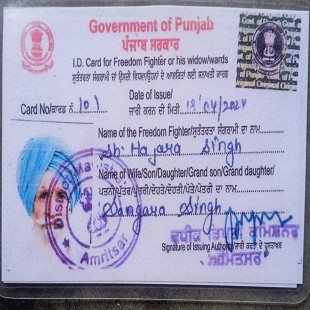 Government of Punjab
ਪੰਜਾਬ ਸਰਕਾਰ
I.D. Card for Freedom Fighter or his widow/wards
ਸੁਤੰਤਰਤਾ ਸੰਗਰਾਮੀ ਜਾਂ ਉਸਦੀ ਵਿਧਵਾ/ਉਹਨਾਂ ਦੇ ਆਸ਼ਰਿਤਾਂ ਲਈ ਸ਼ਨਾਖਤੀ ਕਾਰਡ
Date of Issue/
Card No/ਕਾਰਡ ਨੰ 101 ਜਾਰੀ ਕਰਨ ਦੀ ਮਿਤੀ 18/04/2024
Name of the Freedom Fighter/ਸੁਤੰਤਰਤਾ ਸੰਗਰਾਮੀ ਦਾ ਨਾਮ
Sh Hajara Singh
Name of Wife/Son/Daughter/Grand son/Grand daughter/
ਪਤਨੀ/ਪੁੱਤਰ/ਪੁੱਤਰੀ/ਦੋਹਤੇ/ਦੋਹਤੀ/ਪੋਤੇ/ਪੋਤਰੀ ਦਾ ਨਾਮ
Sangara Singh
ਵਧੀਕ ਡਿਪਟੀ ਕਮਿਸ਼ਨਰ
Signature of Issuing Authority/ਜਾਰੀ ਕਰਤਾ ਦੇ ਹਸਤਾਖਰ
ਅੰਮ੍ਰਿਤਸਰ
Amritsar